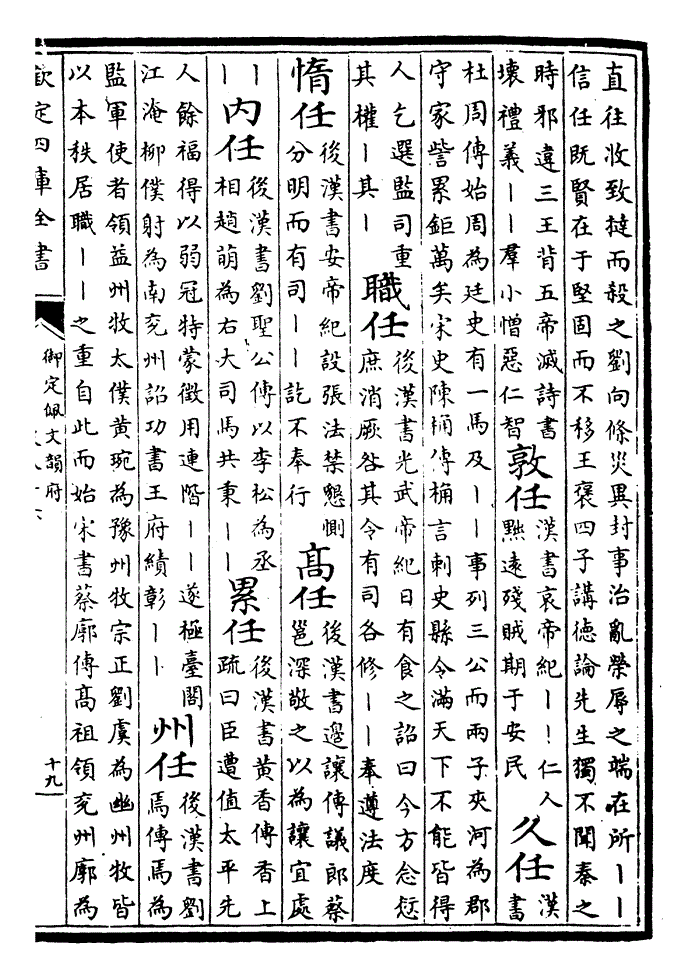 直往收致撻而殺之劉向條災異封事治亂榮辱之端在所丨丨
信任既賢在于堅固而不移王褒四子講德論先生獨不聞秦之
時邪違三王背五帝滅詩書
壞禮義丨丨羣小憎惡仁智
敦任
漢書哀帝紀丨丨仁人
黜遠殘賊期于安民
久任
漢書
杜周傳始周為廷史有一馬及丨丨事列三公而兩子夾河為郡
守家訾累鉅萬矣宋史陳桷傳桷言刺史縣令滿天下不能皆得
人乞選監司重
其權丨其丨
職任
後漢書光武帝紀日有食之詔曰今方念愆
庶消厥咎其令有司各修丨丨奉遵法度
惰任
後漢書安帝紀設張法禁懇惻
分明而有司丨丨訖不奉行
高任
後漢書邊讓傳議郎蔡
邕深敬之以為讓宜處
丨丨
內任
後漢書劉聖公傳以李松為丞
相趙萌為右大司馬共秉丨丨
累任
後漢書黃香傳香上
疏曰臣遭值太平先
人餘福得以弱冠特蒙徵用連階丨丨遂極臺閣
江淹柳僕射為南兖州詔功書王府績彰丨丨
州任
後漢書劉
焉傳焉為
監軍使者領益州牧太僕黃琬為豫州牧宗正劉虞為幽州牧皆
以本秩居職丨丨之重自此而始宋書蔡廓傳高祖領兖州廓為
欽定四庫全書
御定佩文韻府
十九